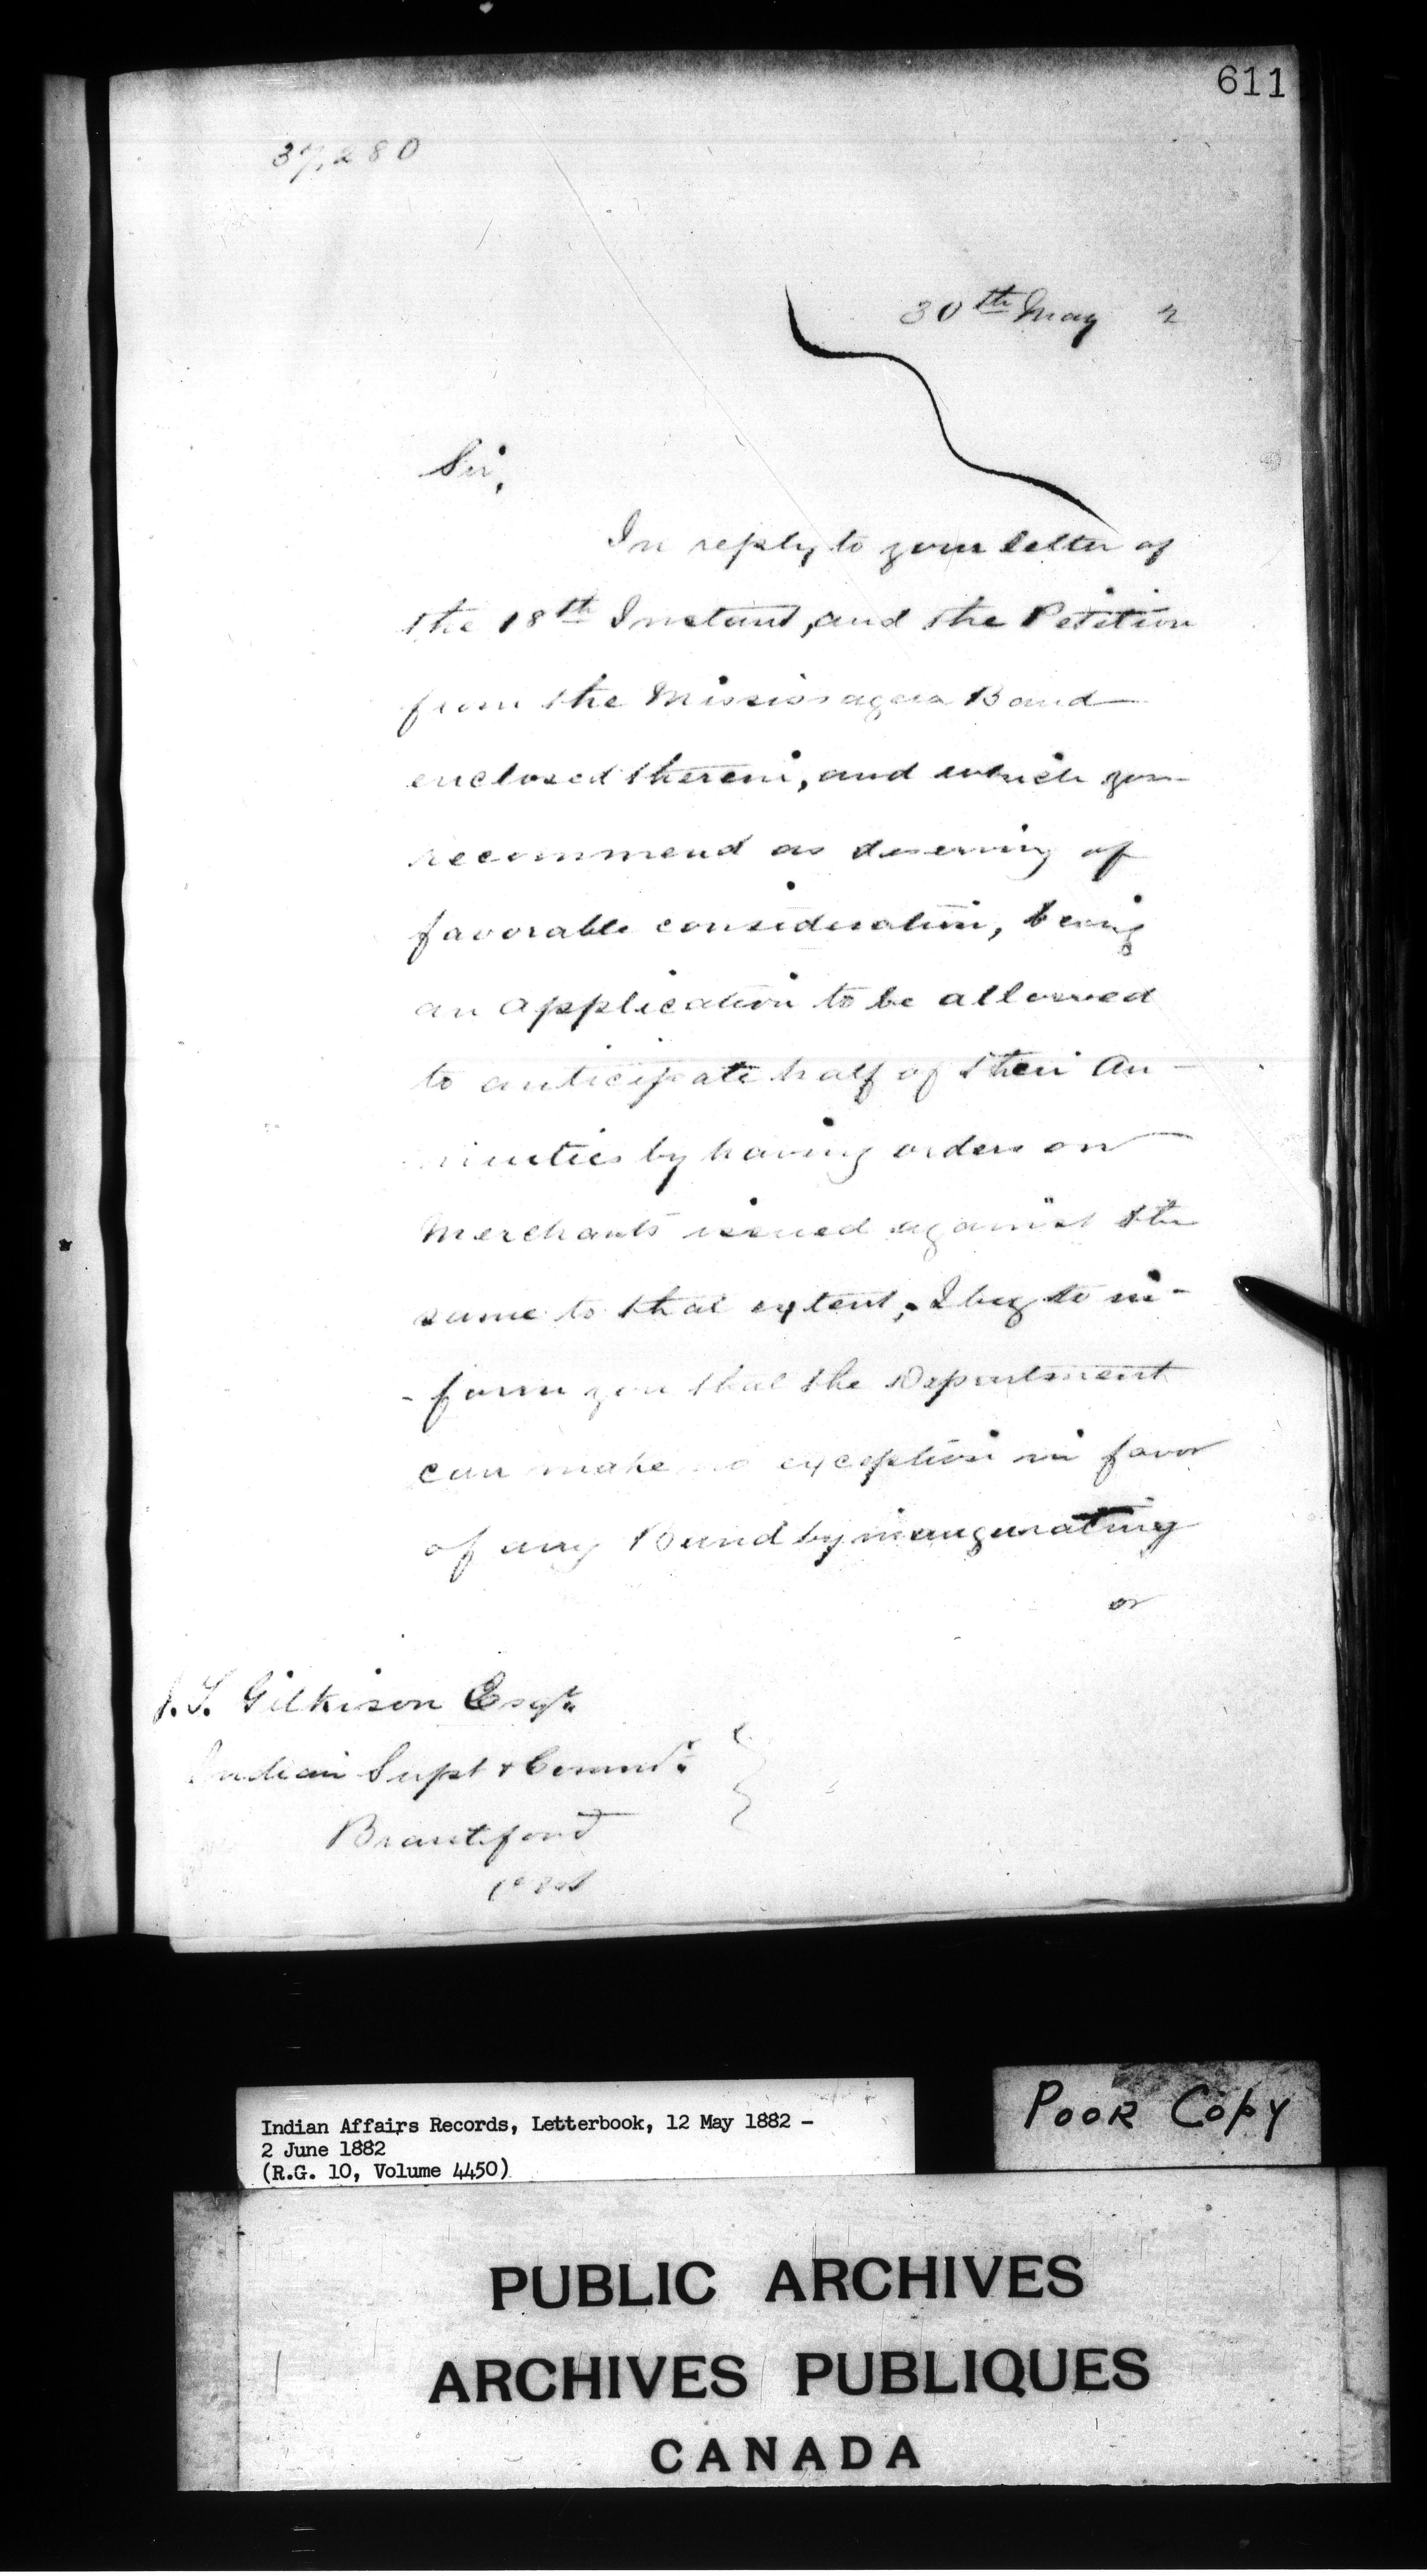 611
37,280
30th May 2
Sir,
In reply to your letter of
the 18th Instant, and the Petition
from the Mississagua Band
enclosed therein, and which you
recommend as deserving of
favorable consideration, being
an application to be allowed
to anticipate half of their An-
nuities by having orders on
Merchants issued against the
same to that extent, I beg to in-
-form you that the Department
can make no exception in favor
of any Band by inaugurating
or
J.T. Gilkison Esqr
Indian Supt & Commr
Brantford
Indian Affairs Records, Letterbook, 12 May 1882 -
2 June 1882
(R.G. 10, Volume 4450)
POOR COPY
PUBLIC ARCHIVES
ARCHIVES PUBLIQUES
CANADA